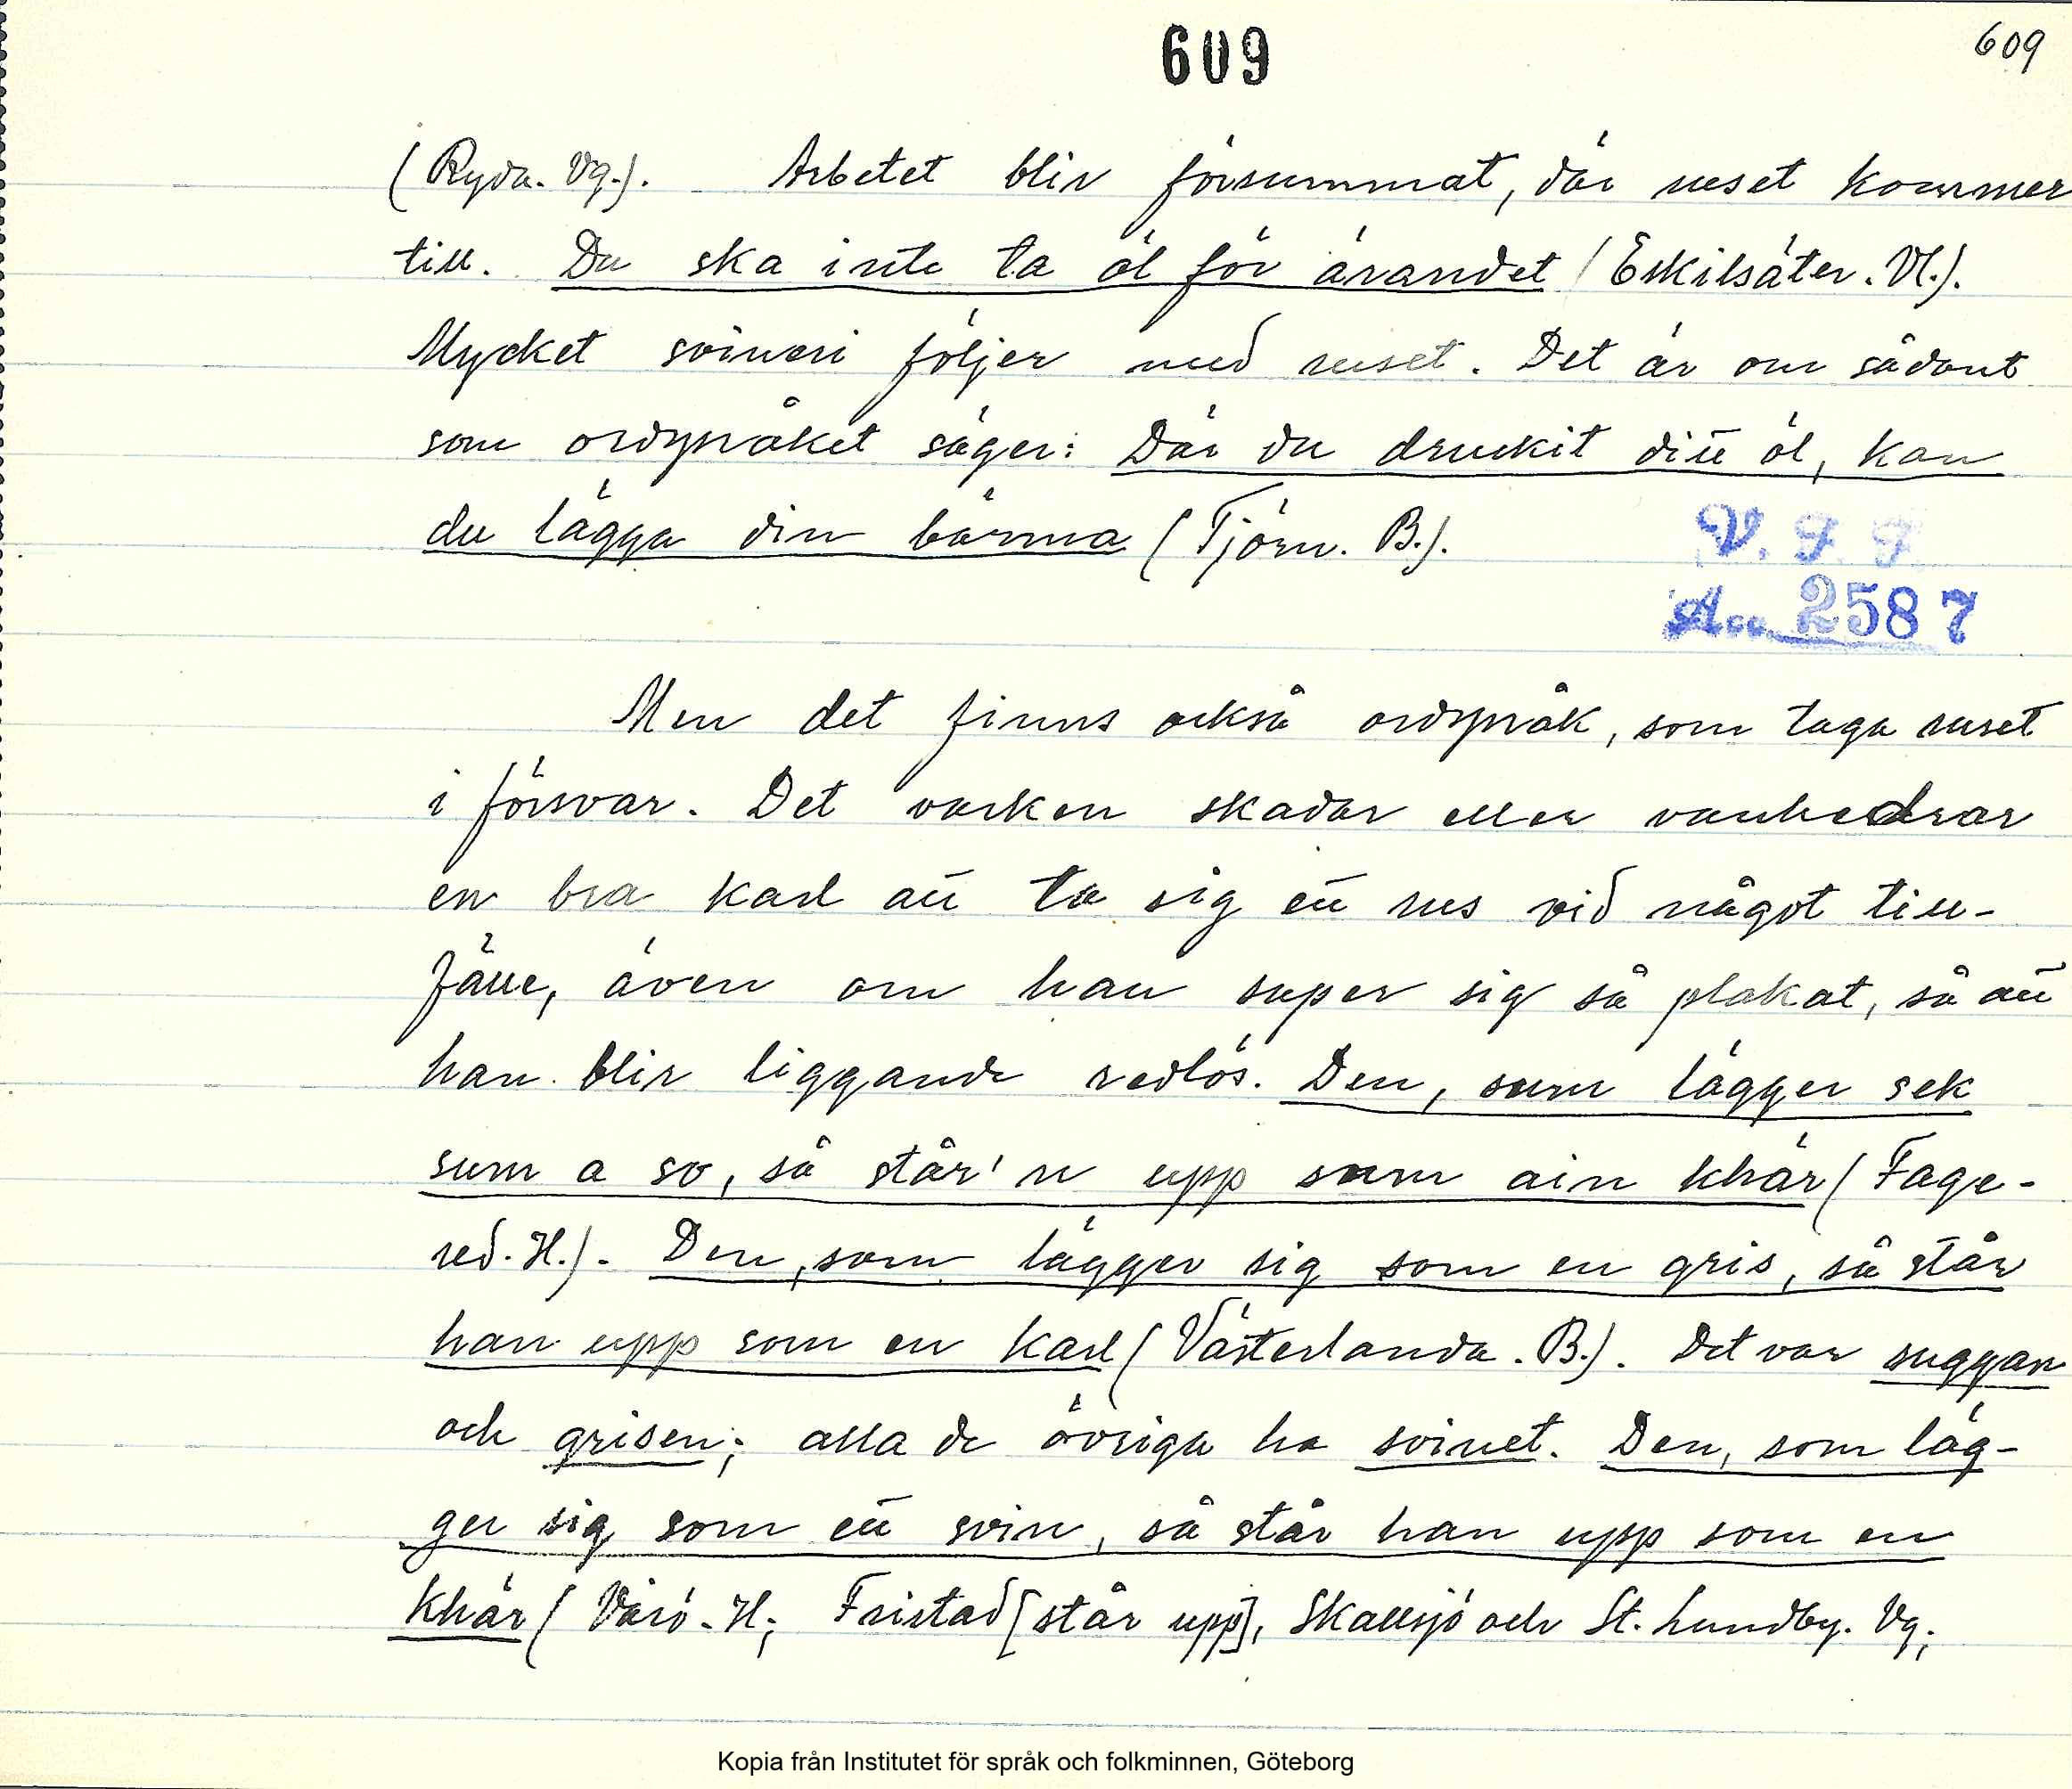 609
609
(Ryda. Vg.). Arbetet blir försummat, där ruset kommer
till. Du ska inte ta öl för ärandet (Eskilsäter. Vl.).
Mycket svineri följer med ruset. Det är om sådant
som ordspråket säger: Där du druckit ditt öl, kan
du lägga din bärma (Tjörn. B.).
V. F. F.
Acc. 2587
Men det finns också ordspråk, som taga ruset
i försvar. Det varken skadar eller vanhedrar
en bra karl att ta sig ett rus vid något till-
fälle, även om han super sig så plakat, så att
han blir liggande redlös. Den, sum lägger sek
sum a so, så står'n upp sum ain khär (Fage-
red. H.). Den, som lägger sig som en gris, så står
han upp som en karl (Västerlanda. B.). Det var suggan
och grisen; alla de övriga ha svinet. Den, som läg-
ger sig som ett svin, så står han upp som en
khär (Värö. H; Fristad [står upp], Skallsjö och St. Lundby. Vg;
Kopia från Institutet för språk och folkminnen, Göteborg